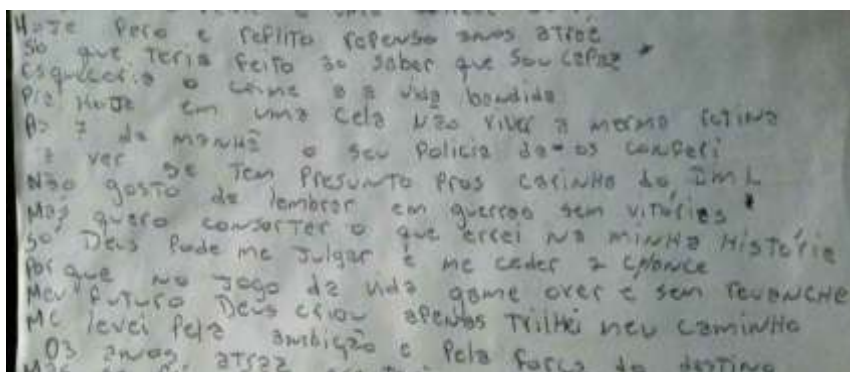 Hoje Pero e reflito repenso anos atraz
So que teria feito ao saber que sou capaz
Esqueceria o crime a a vida bandida
Pra Hoje em uma cela Não viver a mesma rotina
As 7 da manhã o seu Policia da os conferi
a ver se tem Presunto Pros carinho do IML
Não gosto de lembrar em guerras sem vitórias
Mas quero consorter o que errei na minha Histórie
So Deus Pode me Julgar e me ceder a chance
Por que no Jogo da vida game over e sem revanche
Meu futuro Deus criou apenas trilhei meu caminho
Me levei Pela ambição e Pela força do destino
03 anos atraz